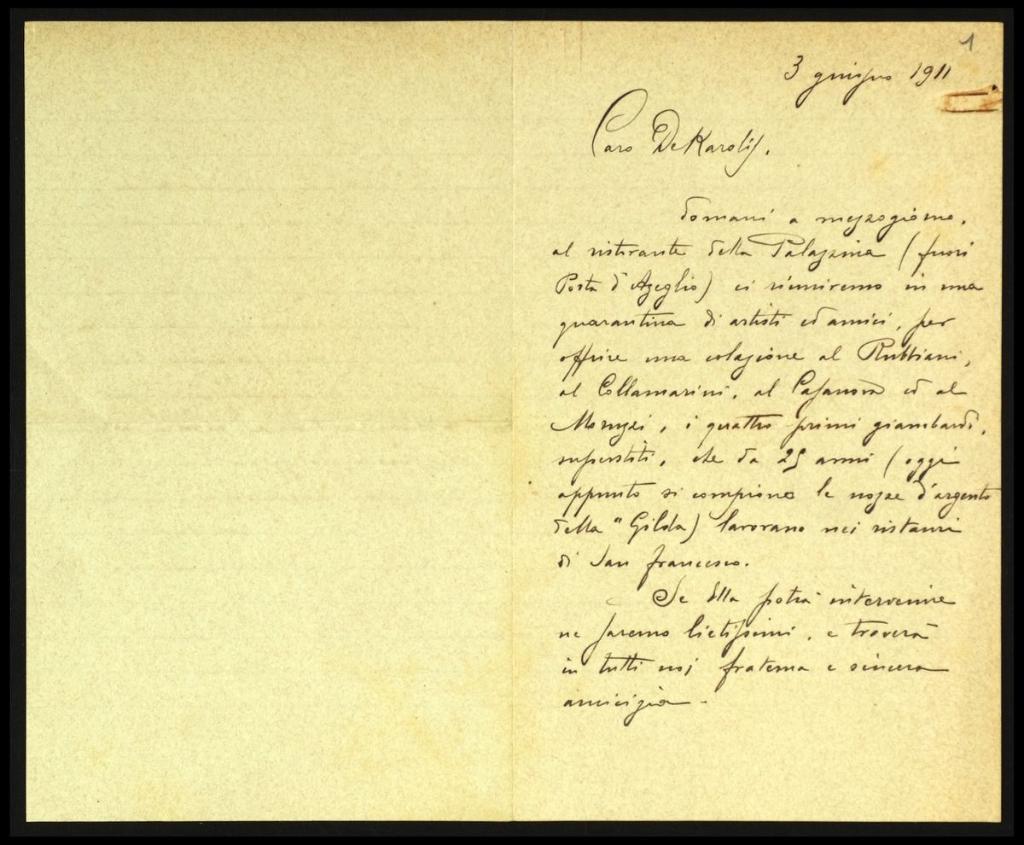 1
3 giugno 1911
Caro DeKarolis.
domani a mezzogiorno,
al ristorante della Palazzina (fuori
Porta d'Azeglio) ci riuniremo in una
quarantina di artisti ed amici, per
offrire una colazione al Rubbiani,
al Collamarini, al Casanova ed al
i quattro primi giambardi,
superstiti, che da 25 anni (oggi
appunto si compiono le nozze d'argento
della "Gilda) lavorano nei ristauri
di San Francesco.
Se Ella potrà intervenire
ne saremo lietissimi, e troverà
in tutti noi fraterna e sincera
amicizia -